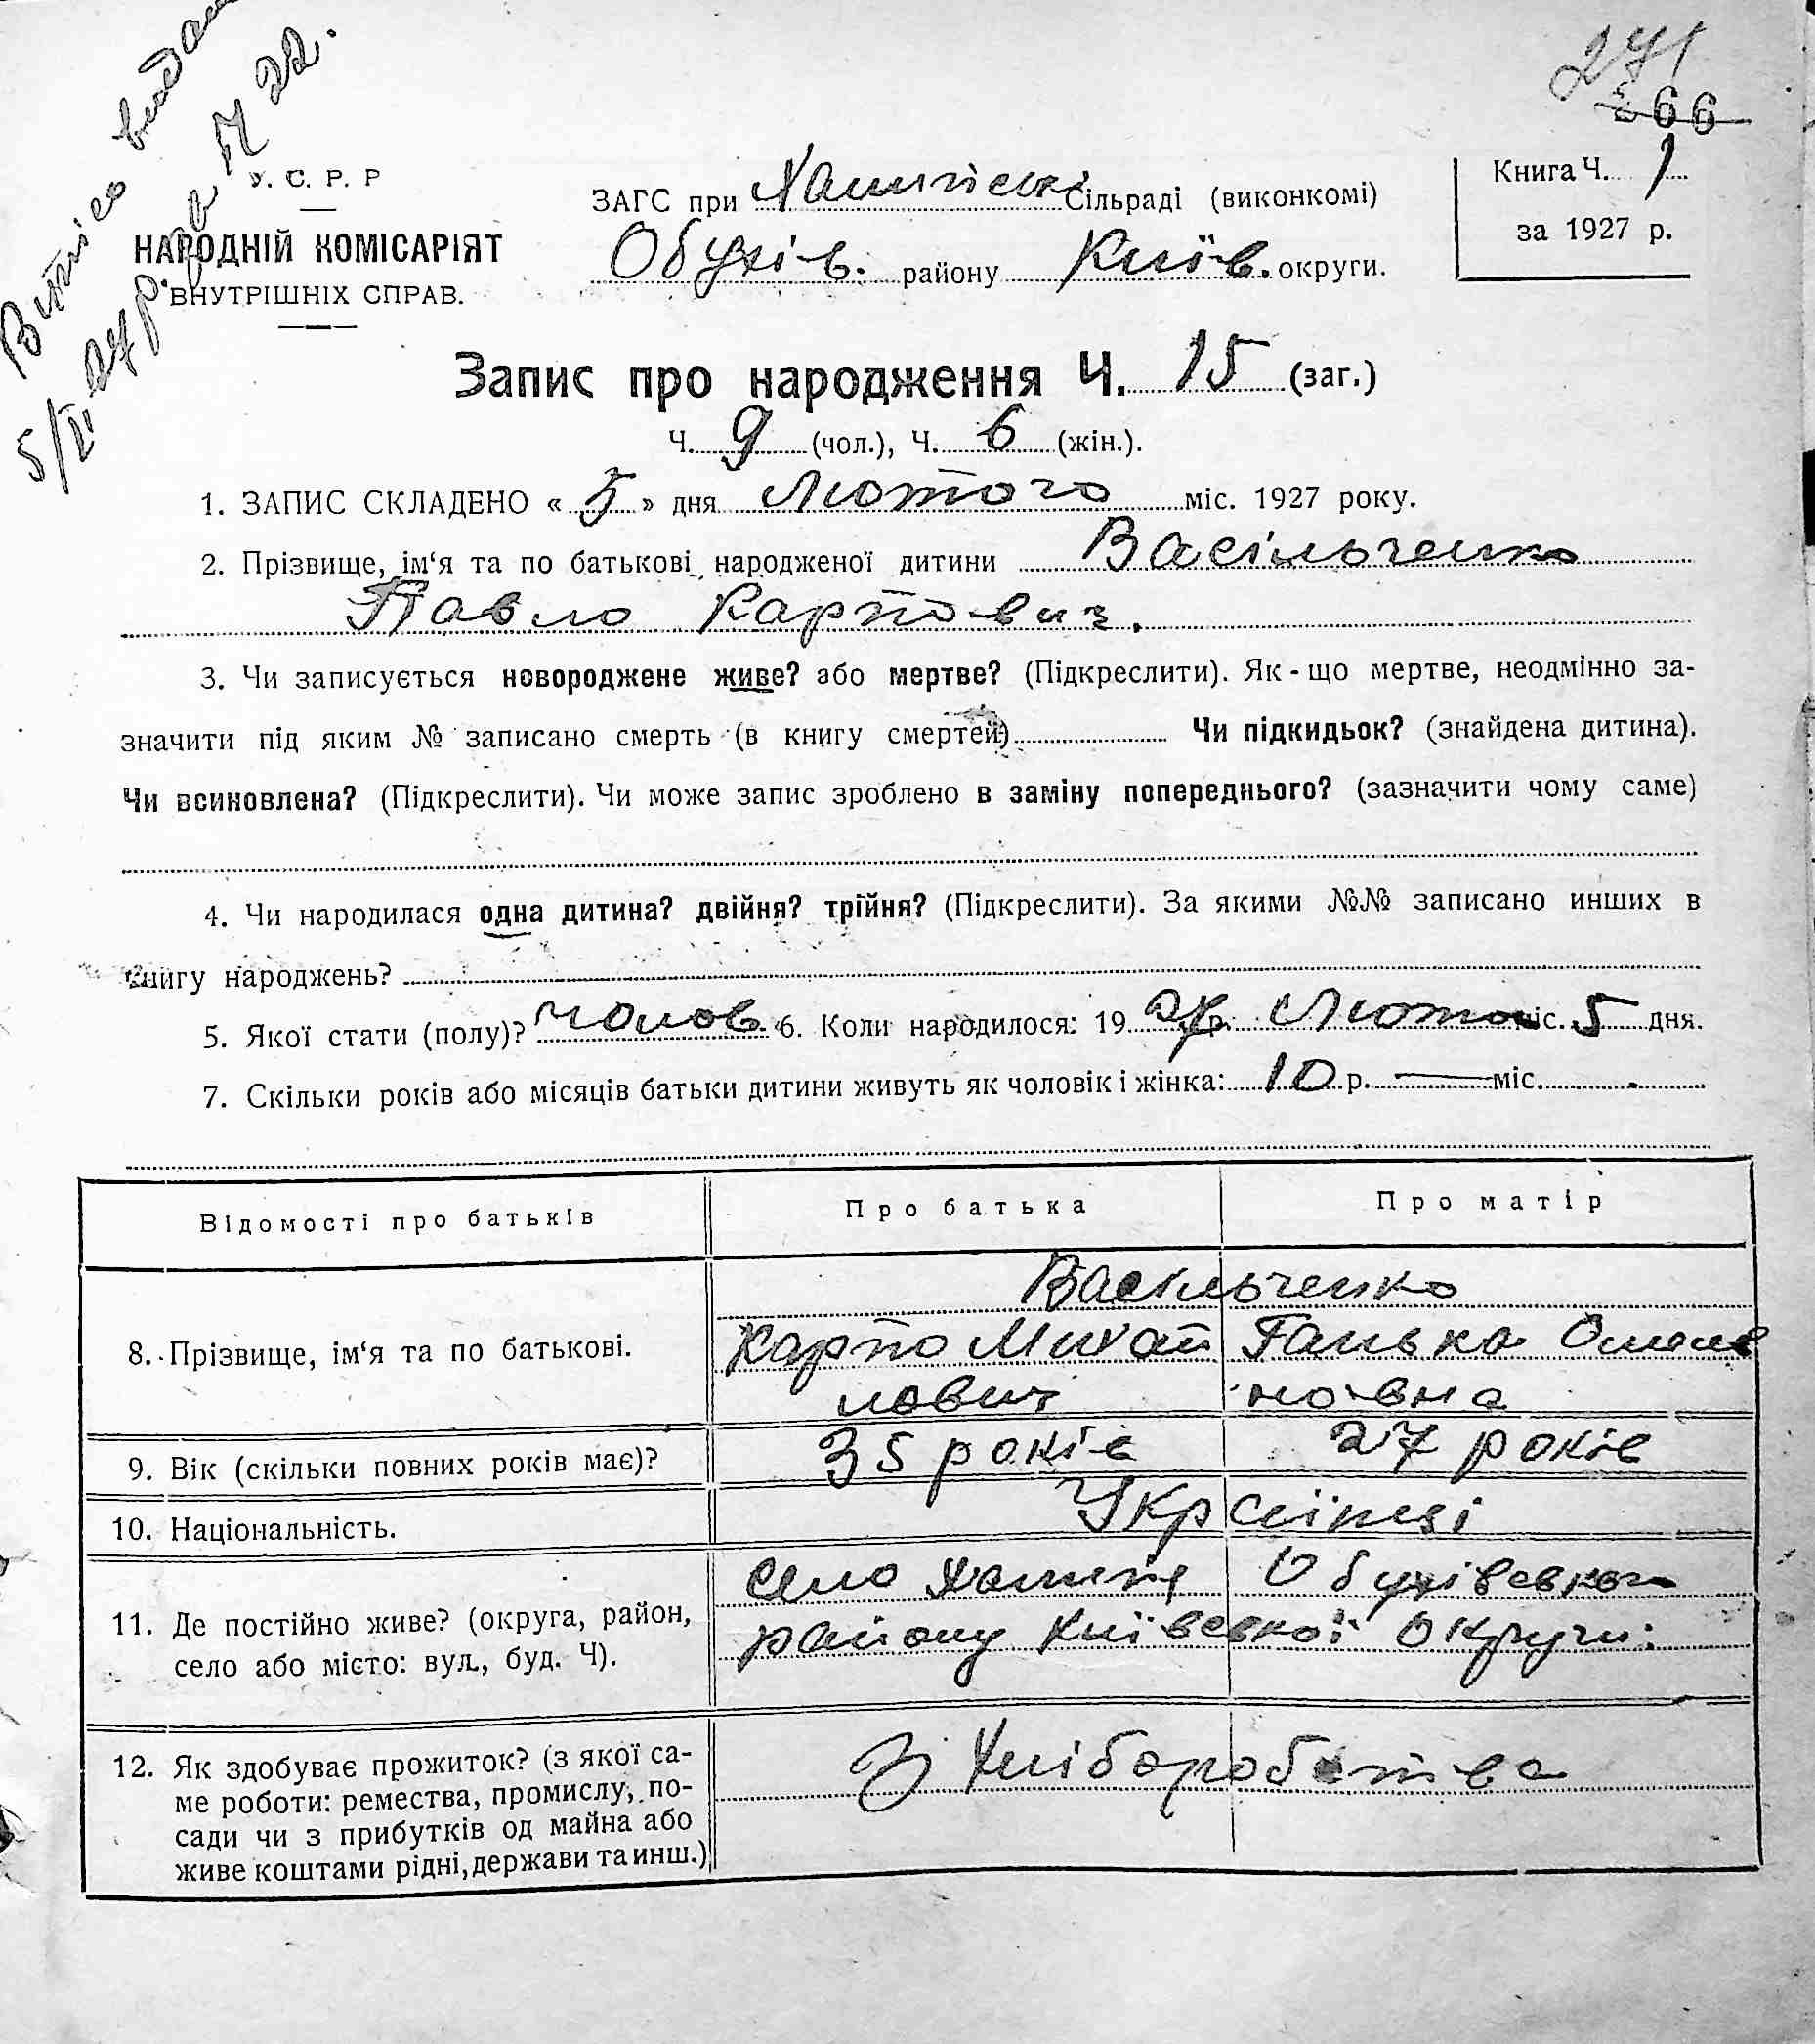 Витяг видано
5/II 27 р. за № 22.
271
266
У. С. Р. Р
НАРОДНІЙ КОМІСАРІЯТ
ВНУТРІШНІХ СПРАВ.
ЗАГС при Халепськ Сільраді (виконкомі)
Обухів. району Київ. округи.
Книга Ч. 1
за 1927 р.
Запис про народження Ч. 15 (заг.)
Ч. 9 (чол.), Ч. 6 (жін.).
1. ЗАПИС СКЛАДЕНО « 5 » дня Лютого міс. 1927 року.
2. Прізвище, ім‘я та по батькові народженої дитини Васільченко
Павло Карпович.
3. Чи записується новороджене живе? або мертве? (Підкреслити). Як-що мертве, неодмінно за-
значити під яким № записано смерть (в книгу смертей) Чи підкидьок? (знайдена дитина).
Чи всиновлена? (Підкреслити). Чи може запис зроблено в заміну попереднього? (зазначити чому саме)
4. Чи народилася одна дитина? двійня? трійня? (Підкреслити). За якими №№ записано инших в
книгу народжень?
5. Якої стати (полу)? чолов. 6. Коли народилося: 19 27 р. Лютого міс. 5 дня.
7. Скільки років або місяців батьки дитини живуть як чоловік і жінка: 10 р. — міс.
Відомості про батьків Про батька Про матір
Васільченко
8. Прізвище, ім‘я та по батькові. Карпо Михай Ганька Омеля
лович новна
9. Вік (скільки повних років має)? 35 років 27 років
10. Національність. Українці
село Халипя Обухівсвкого
11. Де постійно живе? (округа, район, району Київсвкої Округи:
село або місто: вул., буд. Ч).
12. Як здобуває прожиток? (з якої са- З Хліборобства
ме роботи: ремества, промислу, по-
сади чи з прибутків од майна або
живе коштами рідні, держави та инш.)